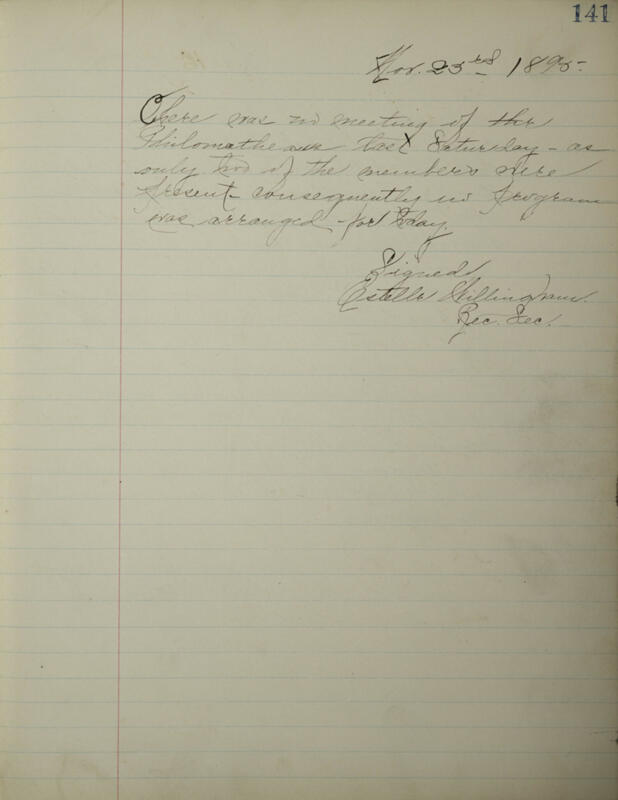 141
Nov. 23rd 1895-
There was no meeting of the
Philomathean last Saturday - as
only two of the members were
present - consequently no program
was arranged - for today.
Signed,
Estelle Willingham.
Rec. Sec.